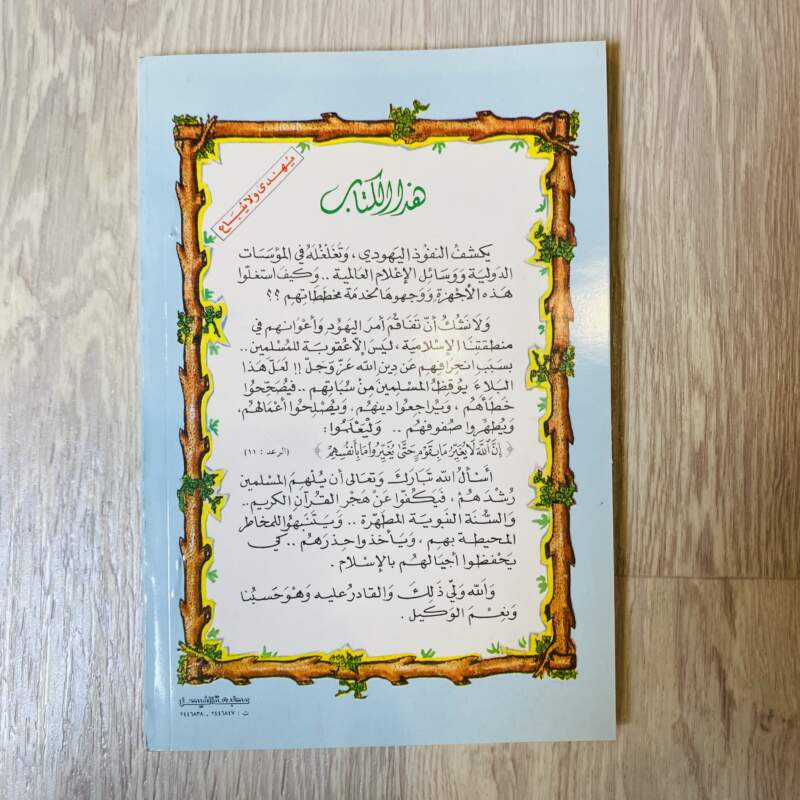 يُهْدى ولا يُبَاع
هذا الكتاب
يكشفُ النفوذ اليَهودي، وَتَغَلغُلهُ في المؤسَسَات
الدوليَة وَوسَائل الإعْلام العَالمية .. وَكيفَ استغلّوا
هَذه الأجْهزة وَوَجهوهَا لخدمَة مخططَاتهم ؟؟
وَلا نَشُكُ أنّ تَفَاقُم أمرَ اليَهُودِ وَأعْوَانهم في
منطقتِنَا الإسْلاميَة، ليَسَ إلاّ عقُوبَة للمُسْلمين ..
بسَبَبِ انحرَافِهم عَن دِينِ الله عَزّ وَجَلّ !! لعَلّ هَذا
البَلاءَ يُوقِظُ المسْلمينَ مِنْ سُبَاتهم .. فيُصَحِّحُوا
خَطَأهُم، وَيُراجعُوا دينهُم، وَيُصْلِحُوا أعْمَالهُم،
وَيُطهِّروا صُفوفهُم .. وَليَعْلَمُوا:
﴿ إِنَّ ٱللَّهَ لَا يُغَيِّرُ مَا بِقَوْمٍ حَتَّىٰ يُغَيِّرُوا۟ مَا بِأَنفُسِهِمْ ﴾ (الرعد : ١١)
أسْألُ الله تَبَاركَ وَتعَالى أن يُلْهِمَ المسْلمين
رُشدَهُمْ، فَيَكفّوا عَنْ هَجْرِ القُرآنِ الكَريم ..
وَالسُّنَة النَبَويَة المطَهّرَة .. وَيَتَنَبّهُوا للمخَاطر
المحيطَة بهِم، وَيَأخذوا حِذرَهُم .. كي
يَحْفظوا أجيَالهُم بالإسْلام .
وَالله وَليّ ذَلِكَ وَالقَادرُ عليه وَهوَ حَسبُنا
وَنِعْمَ الوَكيْل .
ت : ٢٤٤٦٨٤٧ - ٢٤٤٦٨٣٨